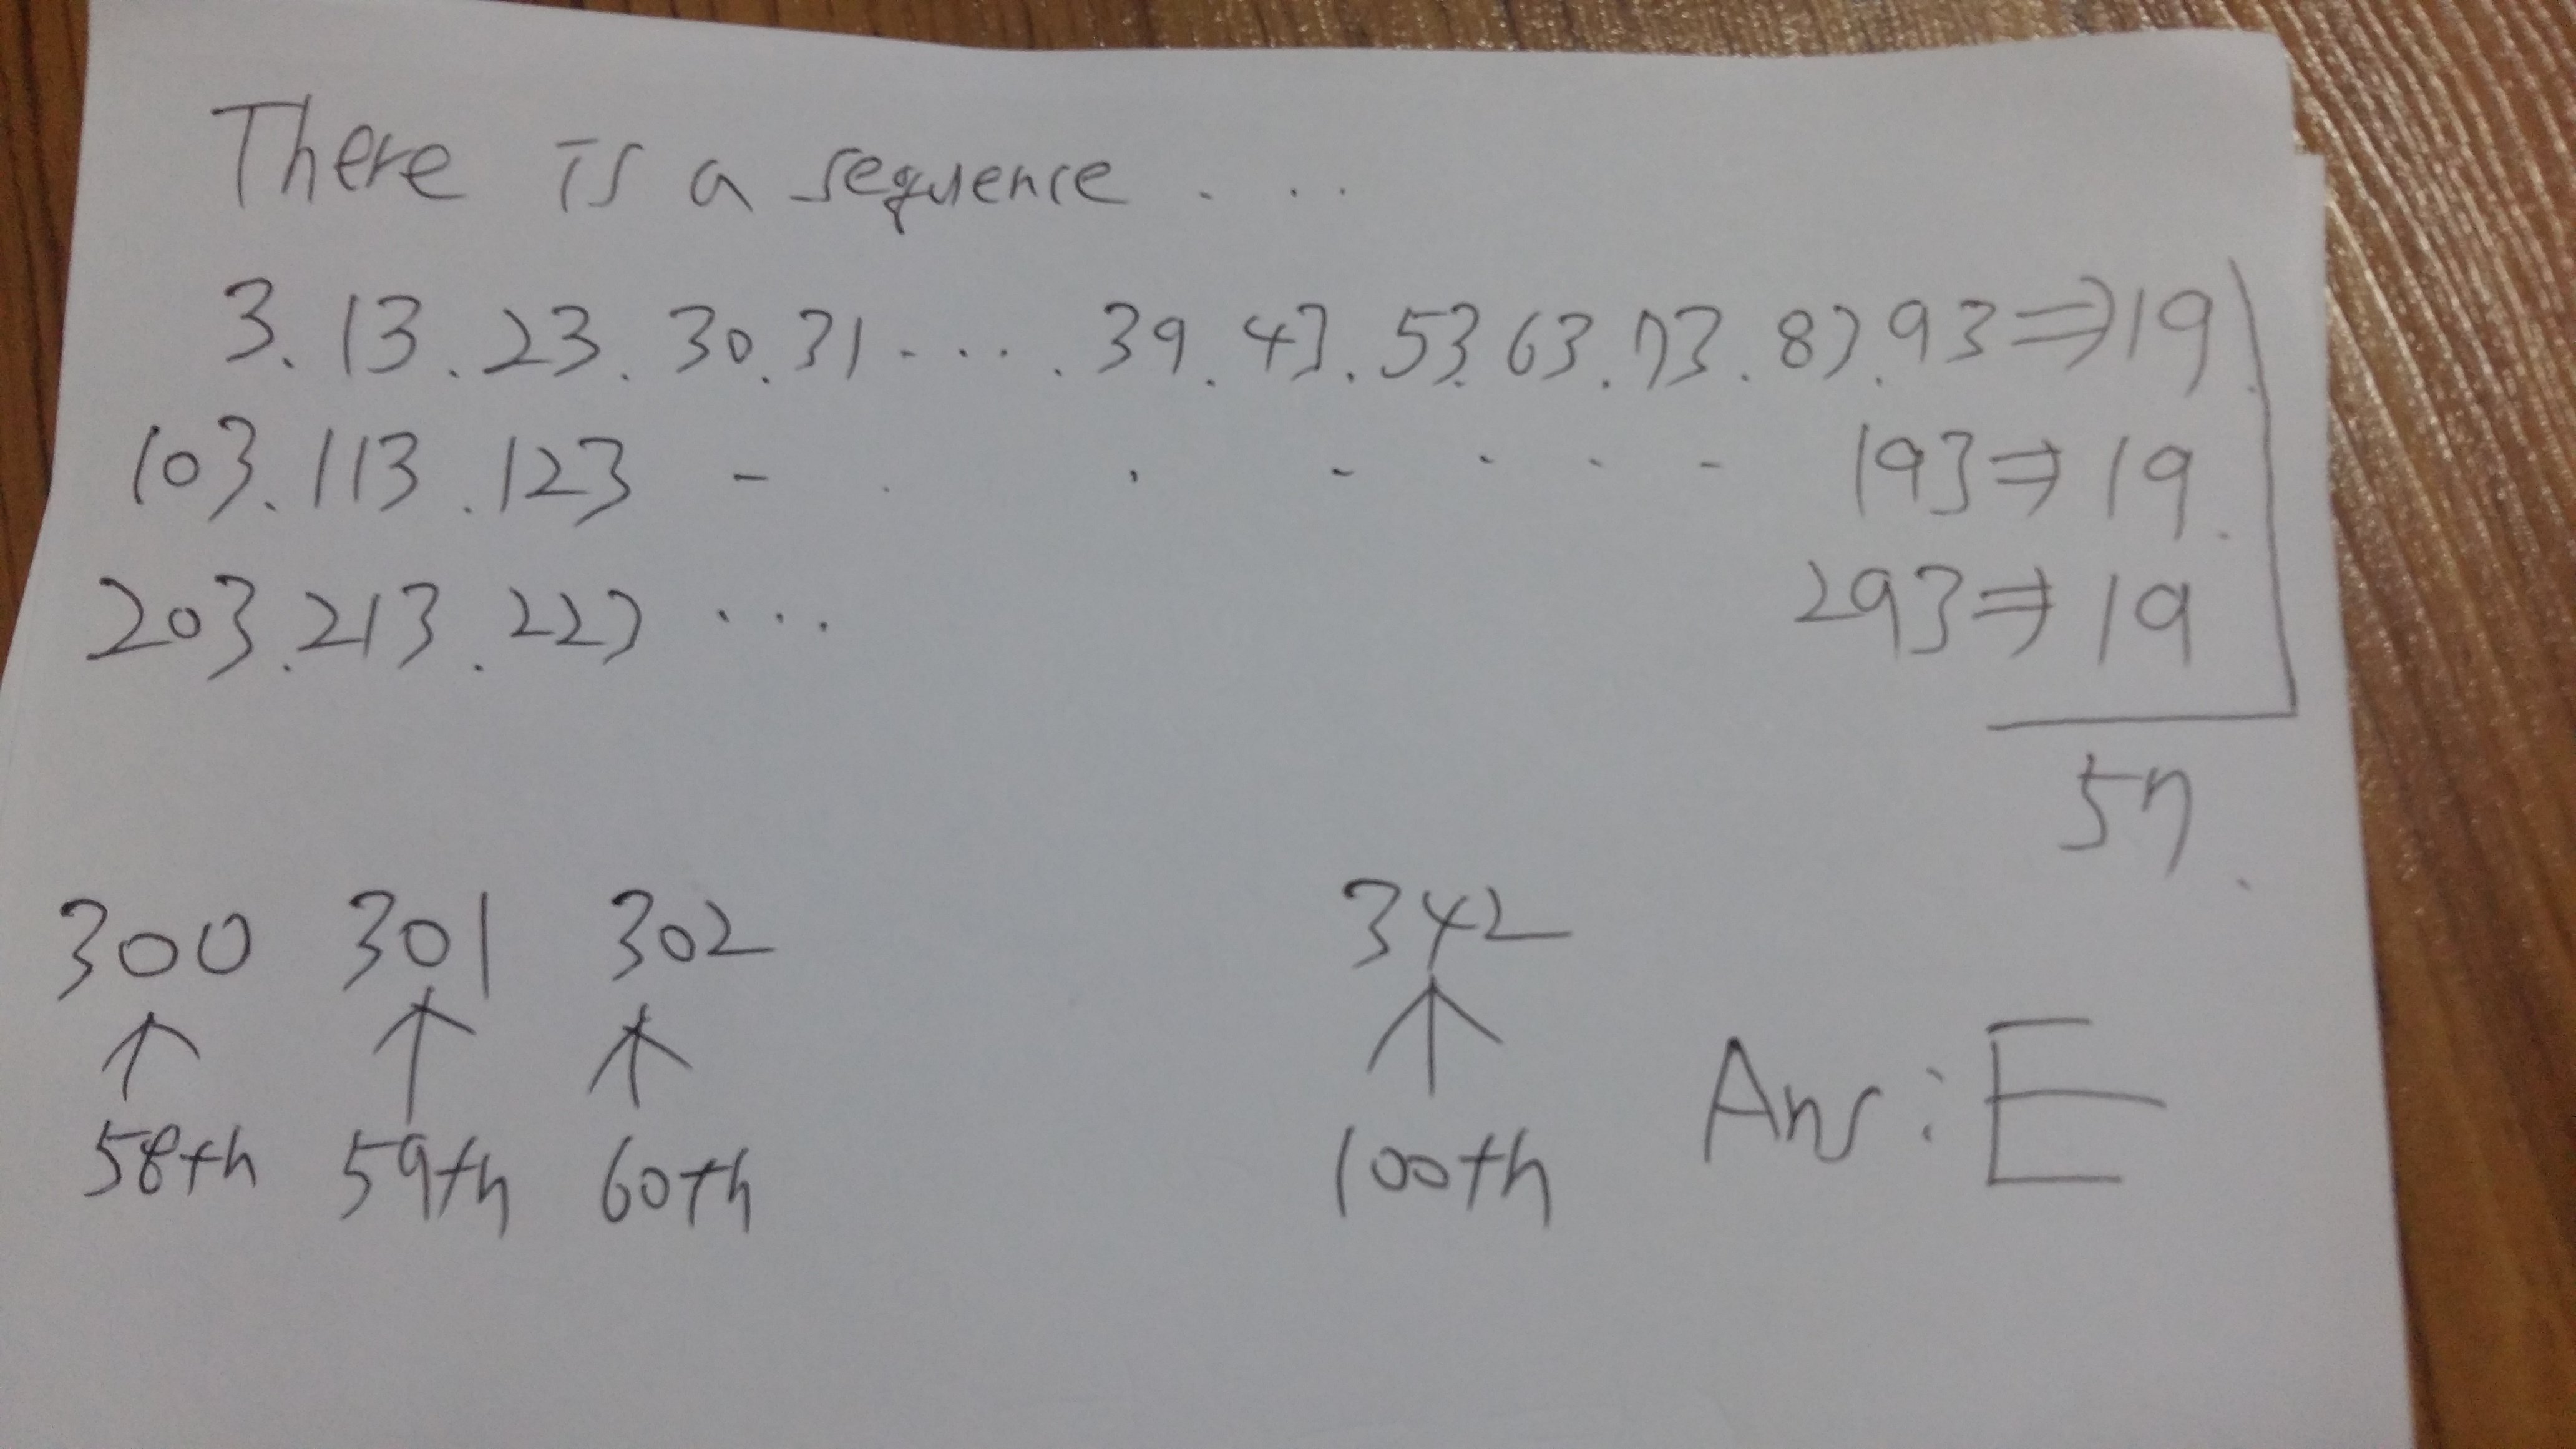 There is a sequence . . .
3. 13. 23. 30. 31 . . . . . 39. 43. 53. 63. 73. 83. 93 ⇒ 19
103. 113. 123 - . . - . . - 193 ⇒ 19
203. 213. 223 . . . 293 ⇒ 19
57
300 301 302 342
↑ ↑ ↑ ↑
58th 59th 60th 100th
Ans: E